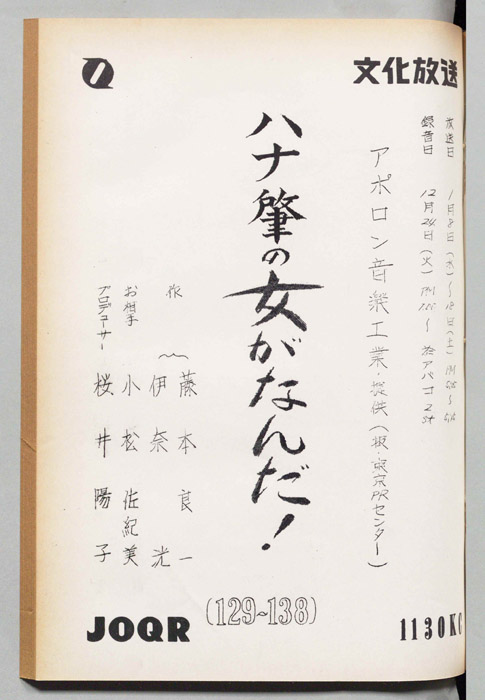 文化放送
放送日 1月8日(水)〜18日(土)
録音日 12月24日(火) 〜 於アバコ2st
アポロン音楽工業・提供(扱・東京PRセンター)
ハナ肇の女がなんだ!
(129~138)
作 藤本良一
伊奈 洸
お相手 小松佐紀美
プロデューサー 桜井陽子
JOQR
1130KC